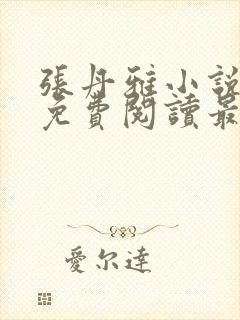 張丹雅小說
免費閱讀最
愛尔達